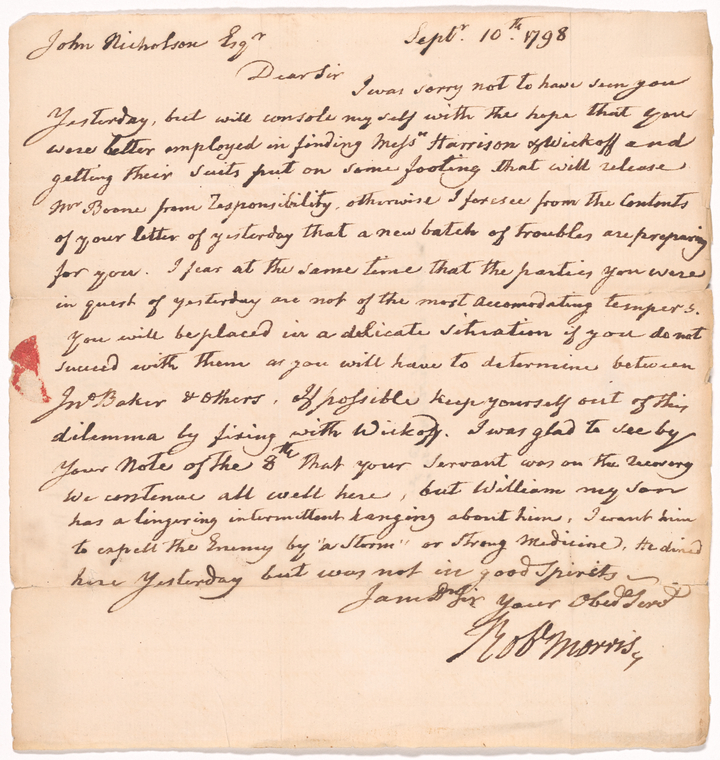 John Nicholson Esqr Septr. 10th. 1798
Dear Sir
I was sorry not to have seen you
Yesterday, but will console myself with the hope that you
were better employed in finding Messrs Harrison & Wickoff and
getting their suits put on some footing that will release
Mr Boone from responsibility, otherwise I foresee from the Contents
of your letter of yesterday that a new batch of troubles are preparing
for you. I fear at the same time that the parties you were
in quest of yesterday are not of the most accomodating tempers.
You will be placed in a delicate situation if you do not
succeed with them as you will have to determine between
Jno. Baker & others. If possible keep yourself out of this
dilemma by fixing with Wickoff. I was glad to see by
Your Note of the 8th that your servant was on the recovery
We continue all well here, but William my son
has a lingering intermittent hanging about him, I want him
to expell the Enemy by "a Storm" or Strong Medicine. He dined
here Yesterday but was not in good Spirits
I am Dr Sir Your Obedt Servt
Robt Morris